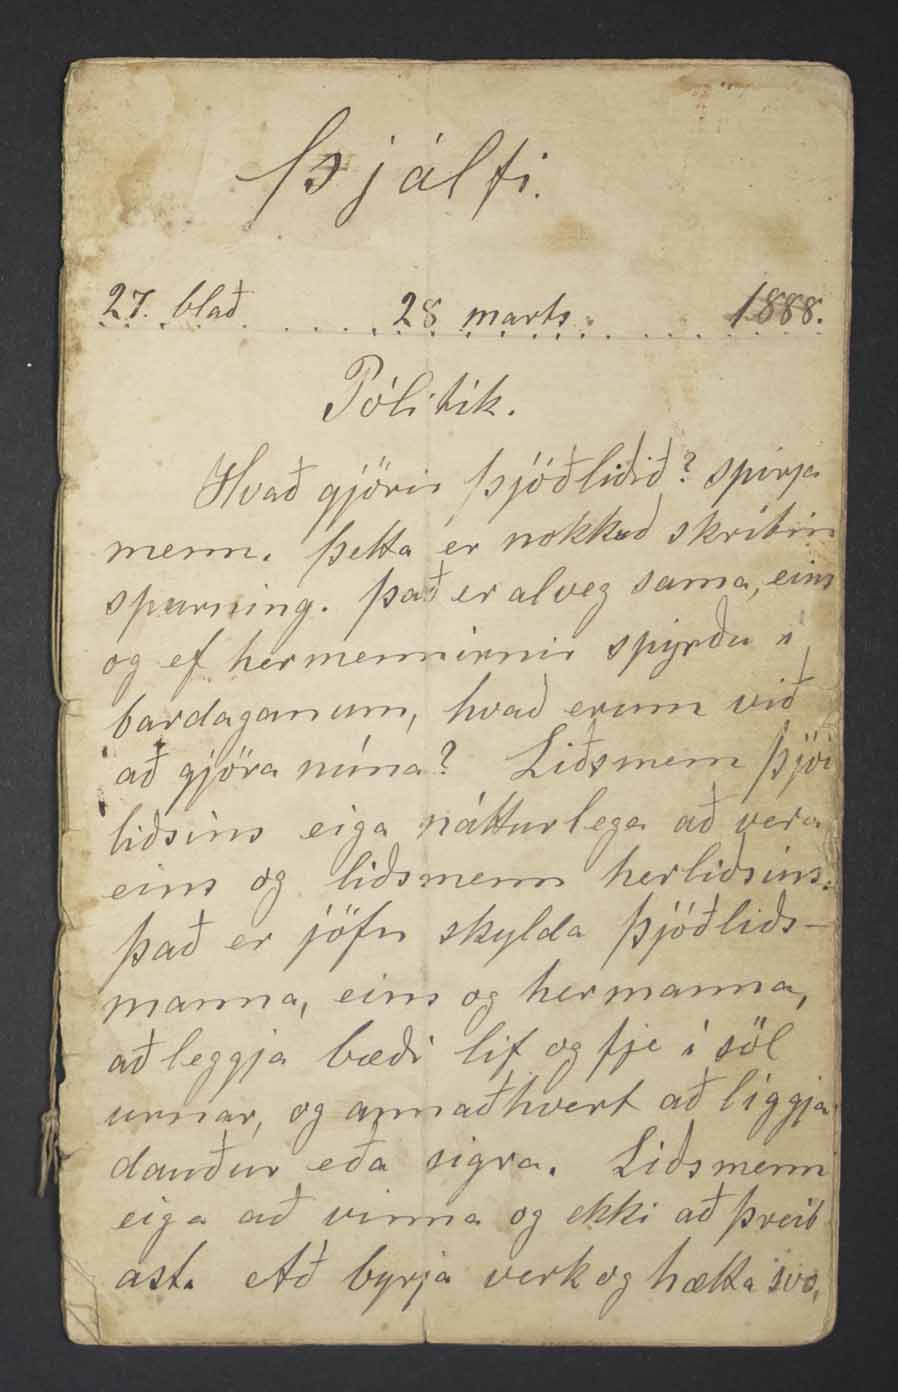 Þjálfi.
27. blað 28 marts 1888.
Pólitík.
Hvað gjörir Þjóðliðið? spirja
menn. Þetta er nokkuð skrítin
spurning. Það er alveg sama, eins
og ef hermennirnir spyrðu í
bardaganum, hvað erum við
að gjöra núna? Liðsmenn Þjóð
liðsins eiga náttúrlega að vera
eins og liðsmenn herliðsins.
Það er jöfn skylda Þjóðliðs-
manna, eins og hermanna,
að leggja bæði líf og fje í söl
urnar, og annaðhvert að liggja
dauður eða sigra. Liðsmenn
eiga að vinna og ekki að þreit
ast. Að byrja verk og hætta svo,